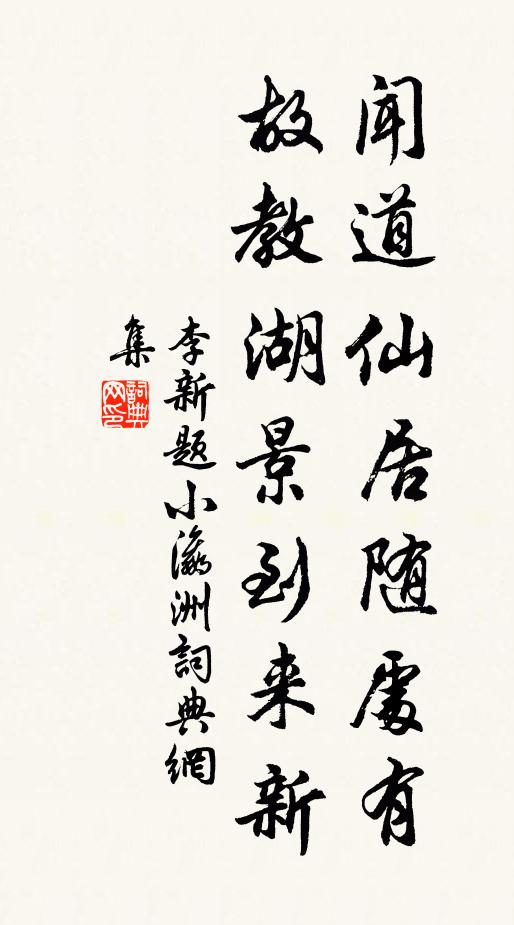 闻道仙居随處有
故教湖景到来新
李新题小瀛洲詞典網
集
詞典
网印